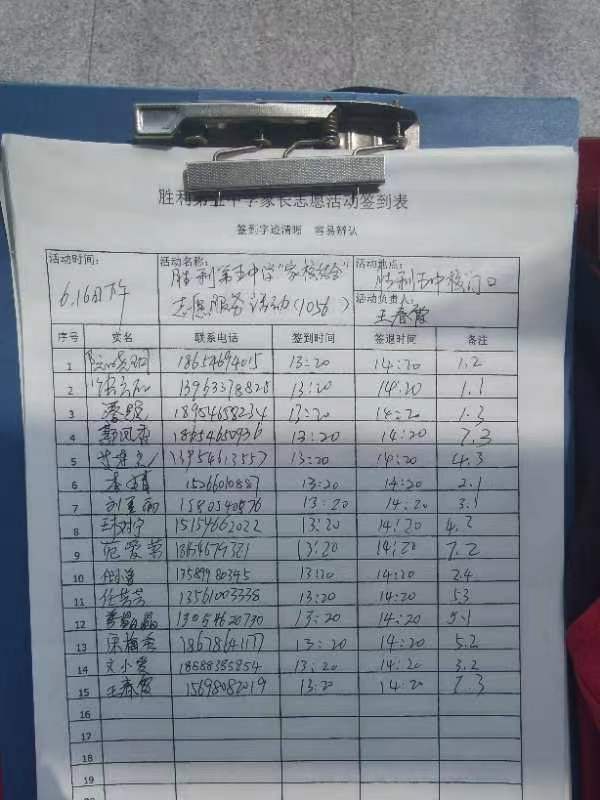 胜利第五中学家长志愿活动签到表
签到字迹清晰 容易辨认
活动时间: 6.16日下午
活动名称: 胜利第五中学"家校结合"志愿服务活动(1056)
活动地点: 胜利五中校门口
活动负责人: 王春霞
序号 实名 联系电话 签到时间 签退时间 备注
1 18654694015 13:20 14:20 1.2
2 13963378825 13:20 14:20 1.1
3 潘锐 18954658234 13:20 14:20 1.3
4 郭凤香 13:20 14:20 7.3
5 13954613557 13:20 14:20 4.3
6 15266010887 13:20 14:20 2.1
7 刘亚丽 13:20 14:20 3.1
8 15154662022 13:20 14:20 4.2
9 范爱菊 13:20 14:20 7.2
10 13589980345 13:20 14:20 2.4
11 任芳芳 13561003338 13:20 14:20 5.3
12 13054620730 13:20 14:20 5.1
13 宋梅香 13:20 14:20 5.2
14 文小爱 18588385854 13:20 14:20 3.2
15 王春霞 15698082019 13:20 14:20 7.3
16
17
18
19